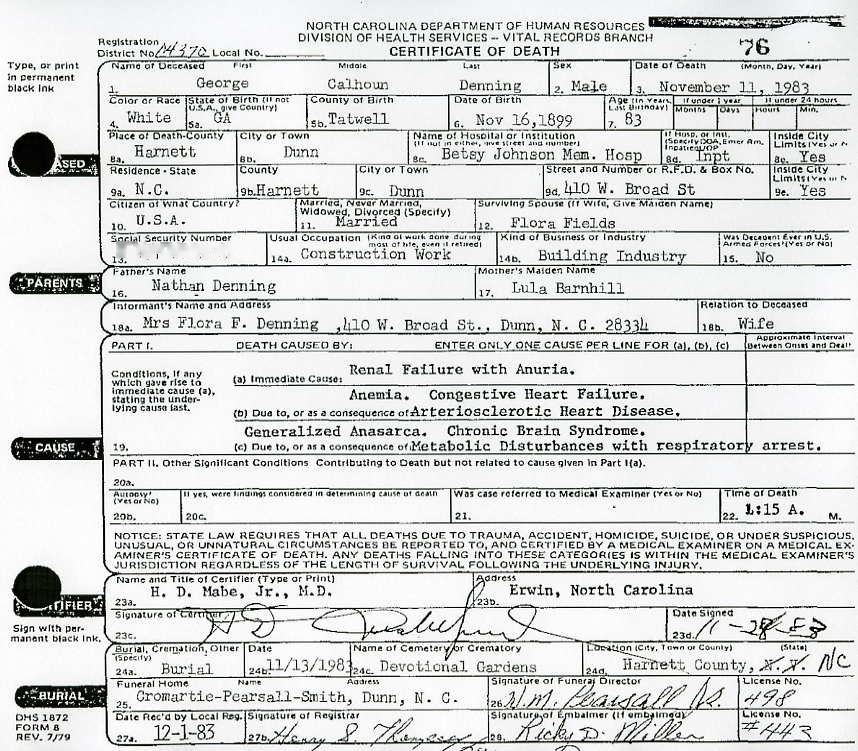 NORTH CAROLINA DEPARTMENT OF HUMAN RESOURCES
DIVISION OF HEALTH SERVICES – VITAL RECORDS BRANCH
CERTIFICATE OF DEATH
76
Registration
District No. Local No.
Type, or print
in permanent
black ink
Name of Deceased First Middle Last Sex Date of Death (Month, Day, Year)
1. George Calhoun Denning 2. Male 3. November 11, 1983
Color or Race State of Birth (If not U.S.A., give Country) County of Birth Date of Birth Age (In Years, Last Birthday) If under 1 year If under 24 hours
Months Days Hours Min.
4. White 5a. GA 5b. Tatwell 6. Nov 16,1899 7. 83
Place of Death-County City or Town Name of Hospital or Institution (If not in either, give street and number) If Hosp. or Inst. (Specify DOA, Emer Rm, Inpatient/OP Inside City Limits (Yes or N
8a. Harnett 8b. Dunn 8c. Betsy Johnson Mem. Hosp 8d. Inpt 8e. Yes
Residence - State County City or Town Street and Number or R.F.D. & Box No. Inside City Limits (Yes or N
9a. N.C. 9b. Harnett 9c. Dunn 9d. 410 W. Broad St 9e. Yes
Citizen of What Country? Married, Never Married, Widowed, Divorced (Specify) Surviving Spouse (If Wife, Give Maiden Name)
10. U.S.A. 11. Married 12. Flora Fields
Social Security Number Usual Occupation (Kind of work done during most of life, even if retired) Kind of Business or Industry Was Decedent Ever in U.S. Armed Forces? (Yes or No)
13. 14a. Construction Work 14b. Building Industry 15. No
PARENTS
Father's Name Mother's Maiden Name
16. Nathan Denning 17. Lula Barnhill
Informant's Name and Address Relation to Deceased
18a. Mrs Flora F. Denning ,410 W. Broad St., Dunn, N. C. 28334 18b. Wife
PART I. DEATH CAUSED BY: ENTER ONLY ONE CAUSE PER LINE FOR (a), (b), (c) Approximate Interval Between Onset and Death
Conditions, if any
which gave rise to
immediate cause (a),
stating the under-
lying cause last.
Renal Failure with Anuria.
(a) Immediate Cause:
Anemia. Congestive Heart Failure.
(b) Due to, or as a consequence of: Arteriosclerotic Heart Disease.
Generalized Anasarca. Chronic Brain Syndrome.
CAUSE
19. (c) Due to, or as a consequence of: Metabolic Disturbances with respiratory arrest.
PART II. Other Significant Conditions Contributing to Death but not related to cause given in Part I(a).
20a.
Autopsy? (Yes or No) If yes, were findings considered in determining cause of death Was case referred to Medical Examiner (Yes or No) Time of Death
20b. 20c. 21. 22. 1:15 A. M.
NOTICE: STATE LAW REQUIRES THAT ALL DEATHS DUE TO TRAUMA, ACCIDENT, HOMICIDE, SUICIDE, OR UNDER SUSPICIOUS,
UNUSUAL, OR UNNATURAL CIRCUMSTANCES BE REPORTED TO, AND CERTIFIED BY A MEDICAL EXAMINER ON A MEDICAL EX-
AMINER'S CERTIFICATE OF DEATH. ANY DEATHS FALLING INTO THESE CATEGORIES IS WITHIN THE MEDICAL EXAMINER'S
JURISDICTION REGARDLESS OF THE LENGTH OF SURVIVAL FOLLOWING THE UNDERLYING INJURY.
Name and Title of Certifier (Type or Print) Address
23a. H. D. Mabe, Jr., M.D. 23b. Erwin, North Carolina
Signature of Certifier Date Signed
Sign with per-
manent black ink.
23c. 23d.
Burial, Cremation, Other (Specify) Date Name of Cemetery or Crematory Location (City, Town or County) (State)
24a. Burial 24b. 11/13/1983 24c. Devotional Gardens 24d. Harnett County, NC
BURIAL
Funeral Home Name Address Signature of Funeral Director License No.
25. Cromartie-Pearsall-Smith, Dunn, N. C. 26. W. M. Pearsall 498
DHS 1872
FORM 8
REV. 7/79
Date Rec'd by Local Reg. Signature of Registrar Signature of Embalmer (If embalmed) License No.
27a. 12-1-83 27b. Henry S. 28. Ricky D. Miller #443